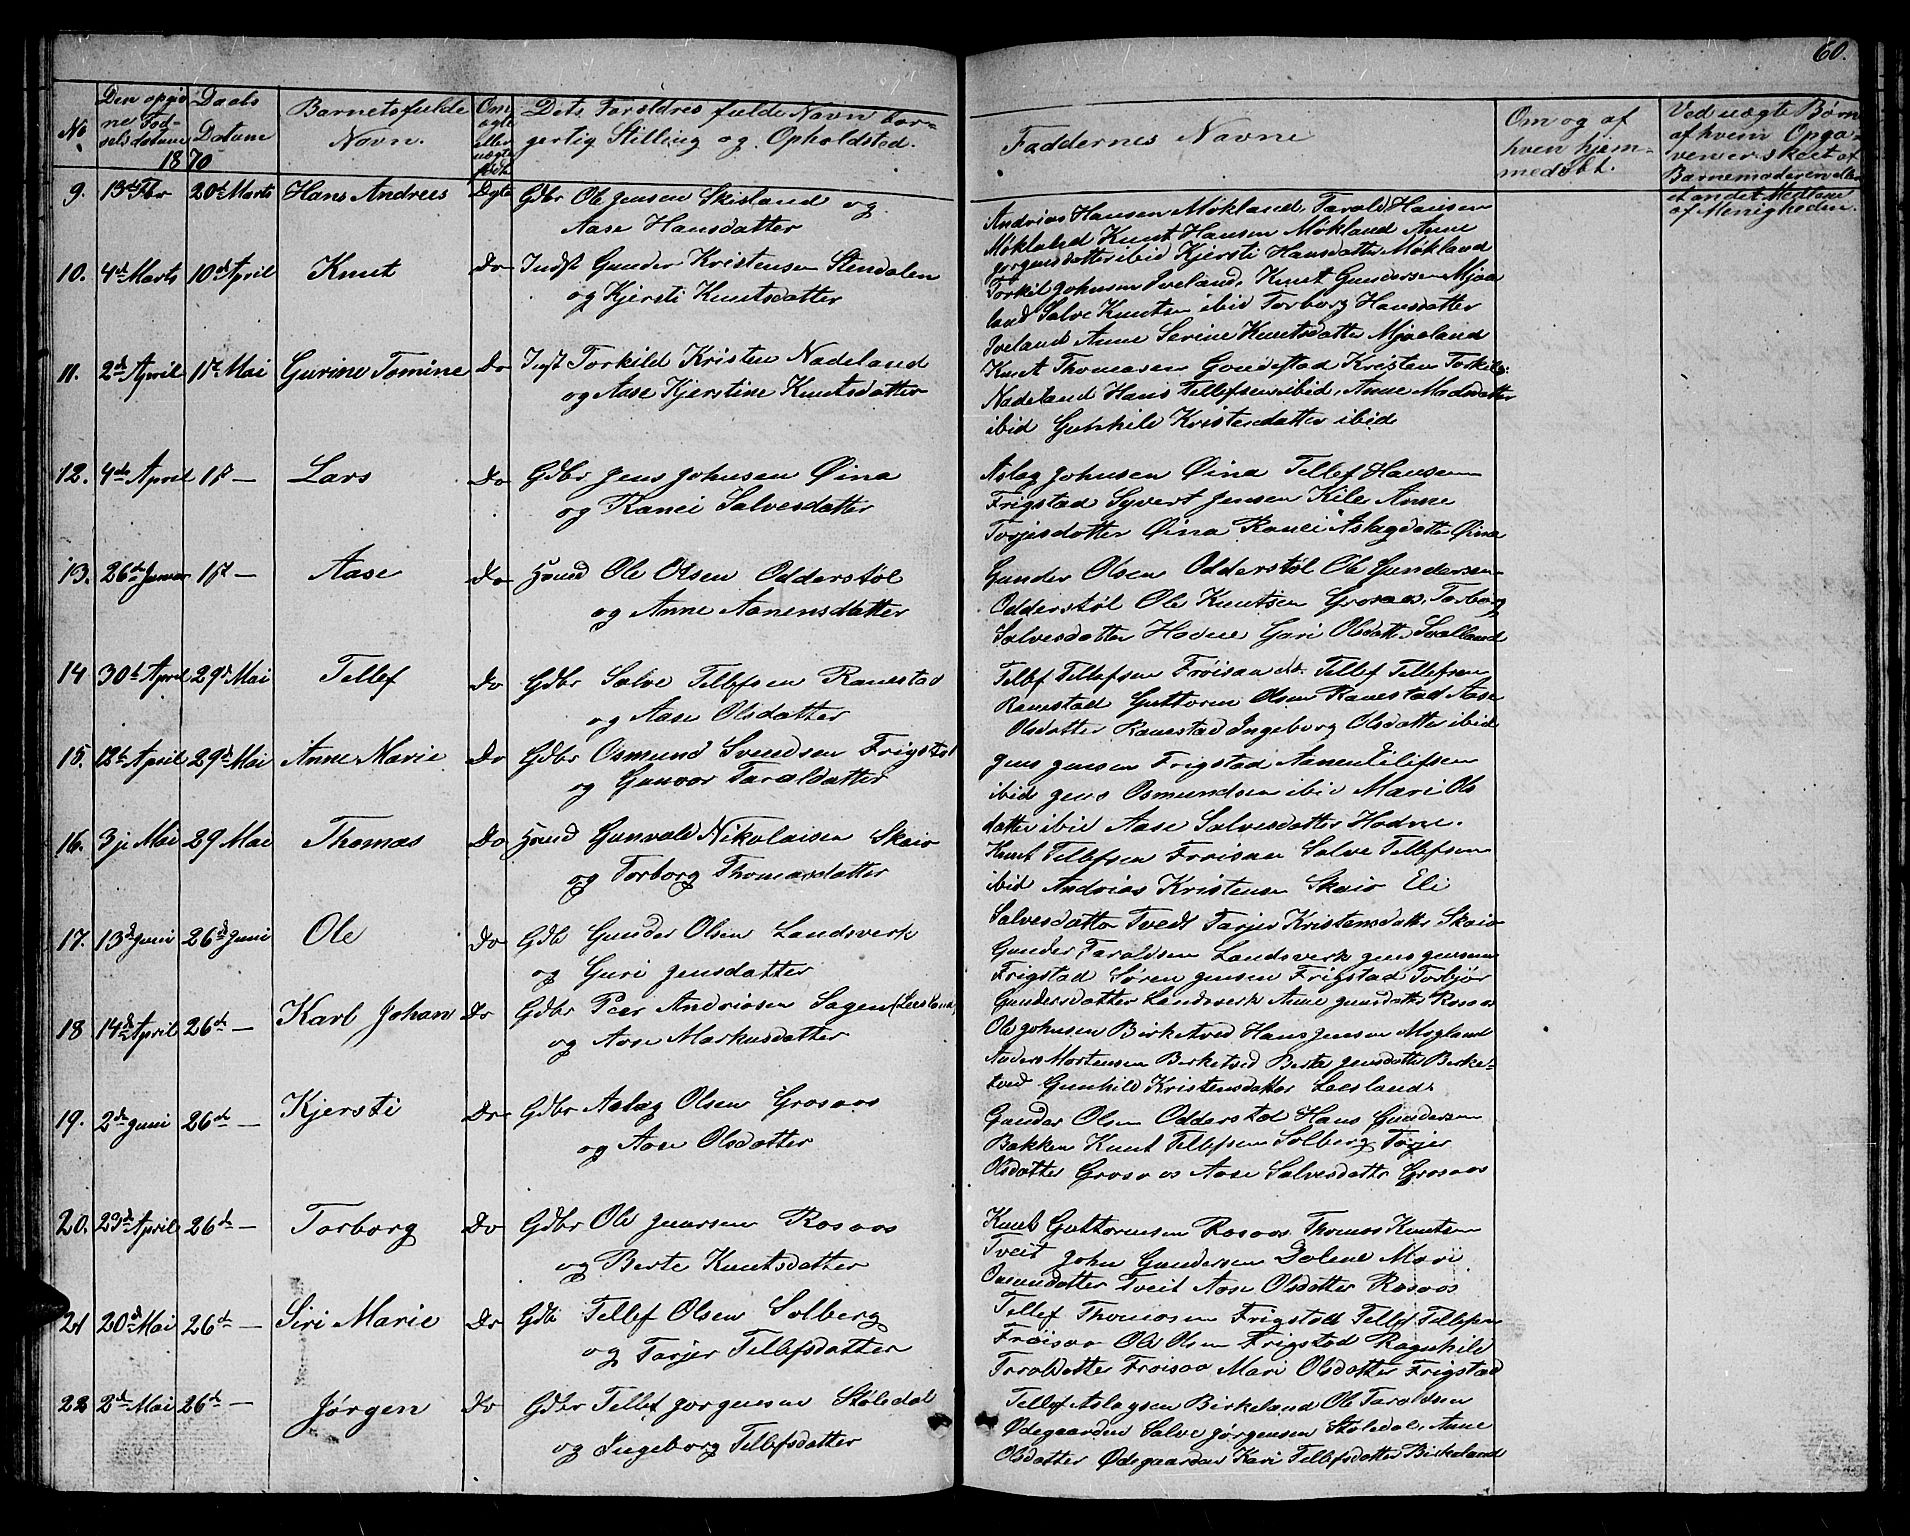 60.
No
Den opgivne Fødselsdatum
Daabs Datum
1870
Barnets fulde Navn.
Om ægte eller uægte født
Dets Forældres fulde Navn borgerlig Stilling og Opholdsted.
Faddernes Navne
Om og af hvem hjemmedøbt.
Ved uægte Børn af hvem Opgaven er skeet af Barnemoderen eller et andet Medlem af Menigheden.
9. 13de Fbr 20de Marts Hans Andreas Ægte Gdbr Ole Jensen Skisland og
Aase Hansdatter
Andrias Hansen Mokland, Tarald Hansen
Mokland Knut Hansen Mokland Anne
Jorgensdatter ibid Kjersti Hansdatter Mokland
10. 4de Marts 10de April Knut Do Indst Gunder Kristensen Stendalen
og Kjersti Knutsdatter
Torkil Johnsen Iveland, Knut Gundersen Mjaa
land Salve Knutsen ibid Torborg Hansdatter
Iveland Anne Serine Knutsdatter Mjaaland
11. 2de April 1st Mai Gurine Tomine Do Inst Torkild Kristen Nadeland
og Aase Kjerstine Knutsdatter
Knut Thomasen Gondestad Kristen Torkils:
Nadeland Hans Tellefsen ibid, Anne Madsdatter
ibid Gunhild Kristendatter ibid
12. 4de April 1st — Lars Do Gdbr Jens Johnsen Øina
og Ranei Salvesdatter
Aslag Johnsen Øina Tellef Hansen
Frigstad Syvert Jensen Kile Anne
Torjesdatter Øina Ranei Aslagdatter Øina
13. 26de Januar 1st — Aase Do Husmd Ole Olsen Odderstøl
og Anne Aanensdatter
Gunder Olsen Odderstøl Ole Gundersen
Odderstøl Ole Knutsen Grosaas, Torborg
Salvesdatter Hodne Guri Olsdatter
14 30de April 29de Mai Tellef Do Gdbr Salve Tellefsen Ranestad
og Aase Olsdatter
Tellef Tellefsen Frøisaa Tellef Tellefsen
Ranestad Guttorm Olsen Ranestad Aase
Olsdatter Ranestad Ingeborg Olsdatter ibid
15. 12de April 29de Mai Anne Marie Do Gdbr Osmund Svendsen Frigstad
og Gunvor Taraldatter
Jens Jensen Frigstad Aanen
ibid Jens Osmundsen ibid Mari Ols
datter ibid Aase Salvesdatter Hodne.
16. 3je Mai 29 Mai Thomas Do Husmd Gunvald Nikolaisen Skaio
og Torborg Thomasdatter
Knut Tellefsen Froisaa Salve Tellefsen
ibid Andrias Kristensen Skaio Eli
Salvesdatter Tvedt Tarjer Kristensdatter Skaio
17. 13de Juni 26de Juni Ole Do Gdb Gunder Olsen Landsverk
og Guri Jensdatter
Gunder Taraldsen Landsverk Jens Jensen
Frigstad Søren Jensen Frigstad Torbjør
Gundersdatter Landsverk Anne Jensdatter Rosaas
18 14de April 26de — Karl Johan Do Gdbr Peer Andriasen Sagen (Leesland)
og Aase Markusdatter
Ole Johnsen Birketved Hans Jensen Mogland
Anders Mortensen Birketved Berte Jensdatter Birke-
tved Gunhild Kristensdatter Leesland.
19. 2de Juni 26de — Kjersti Do Gdbr Aslag Olsen Grosaas
og Aase Olsdatter
Gunder Olsen Odderstøl Hans Gundersen
Bakken Knut Tellefsen Solberg, Tarjer
Olsdatter Grosaas Aase Salvesdatter Grosaas
20. 23de April 26de — Torborg Do Gdbr Ole Rosaas
og Berte Knutsdatter
Knut Guttormsen Rosaas Thomas Knutsen
Tveit John Gundersen Dolene Mari
Tveit Aase Olsdatter Rosaas
21 20de Mai 26de — Siri Marie Do Gdb Tellef Olsen Solberg
og Tarjer Tellefsdatter
Tellef Thomasen Frigstad Tellef Tellefsen
Froisaa Ole Olsen Frigstad Ragnhild
Taraldatter Froisaa Mari Olsdatter Frigstad
22 2de Mai 26de — Jørgen Do Gdbr Tellef Jorgensen Stølsdal
og Ingeborg Tellefsdatter
Tellef Aslagsen Birkeland Ole Taraldsen
Ødegaarden Salve Jørgensen Stølsdal, Anne
Olsdatter Ødegaarden Kari Tellefsdatter Birkeland